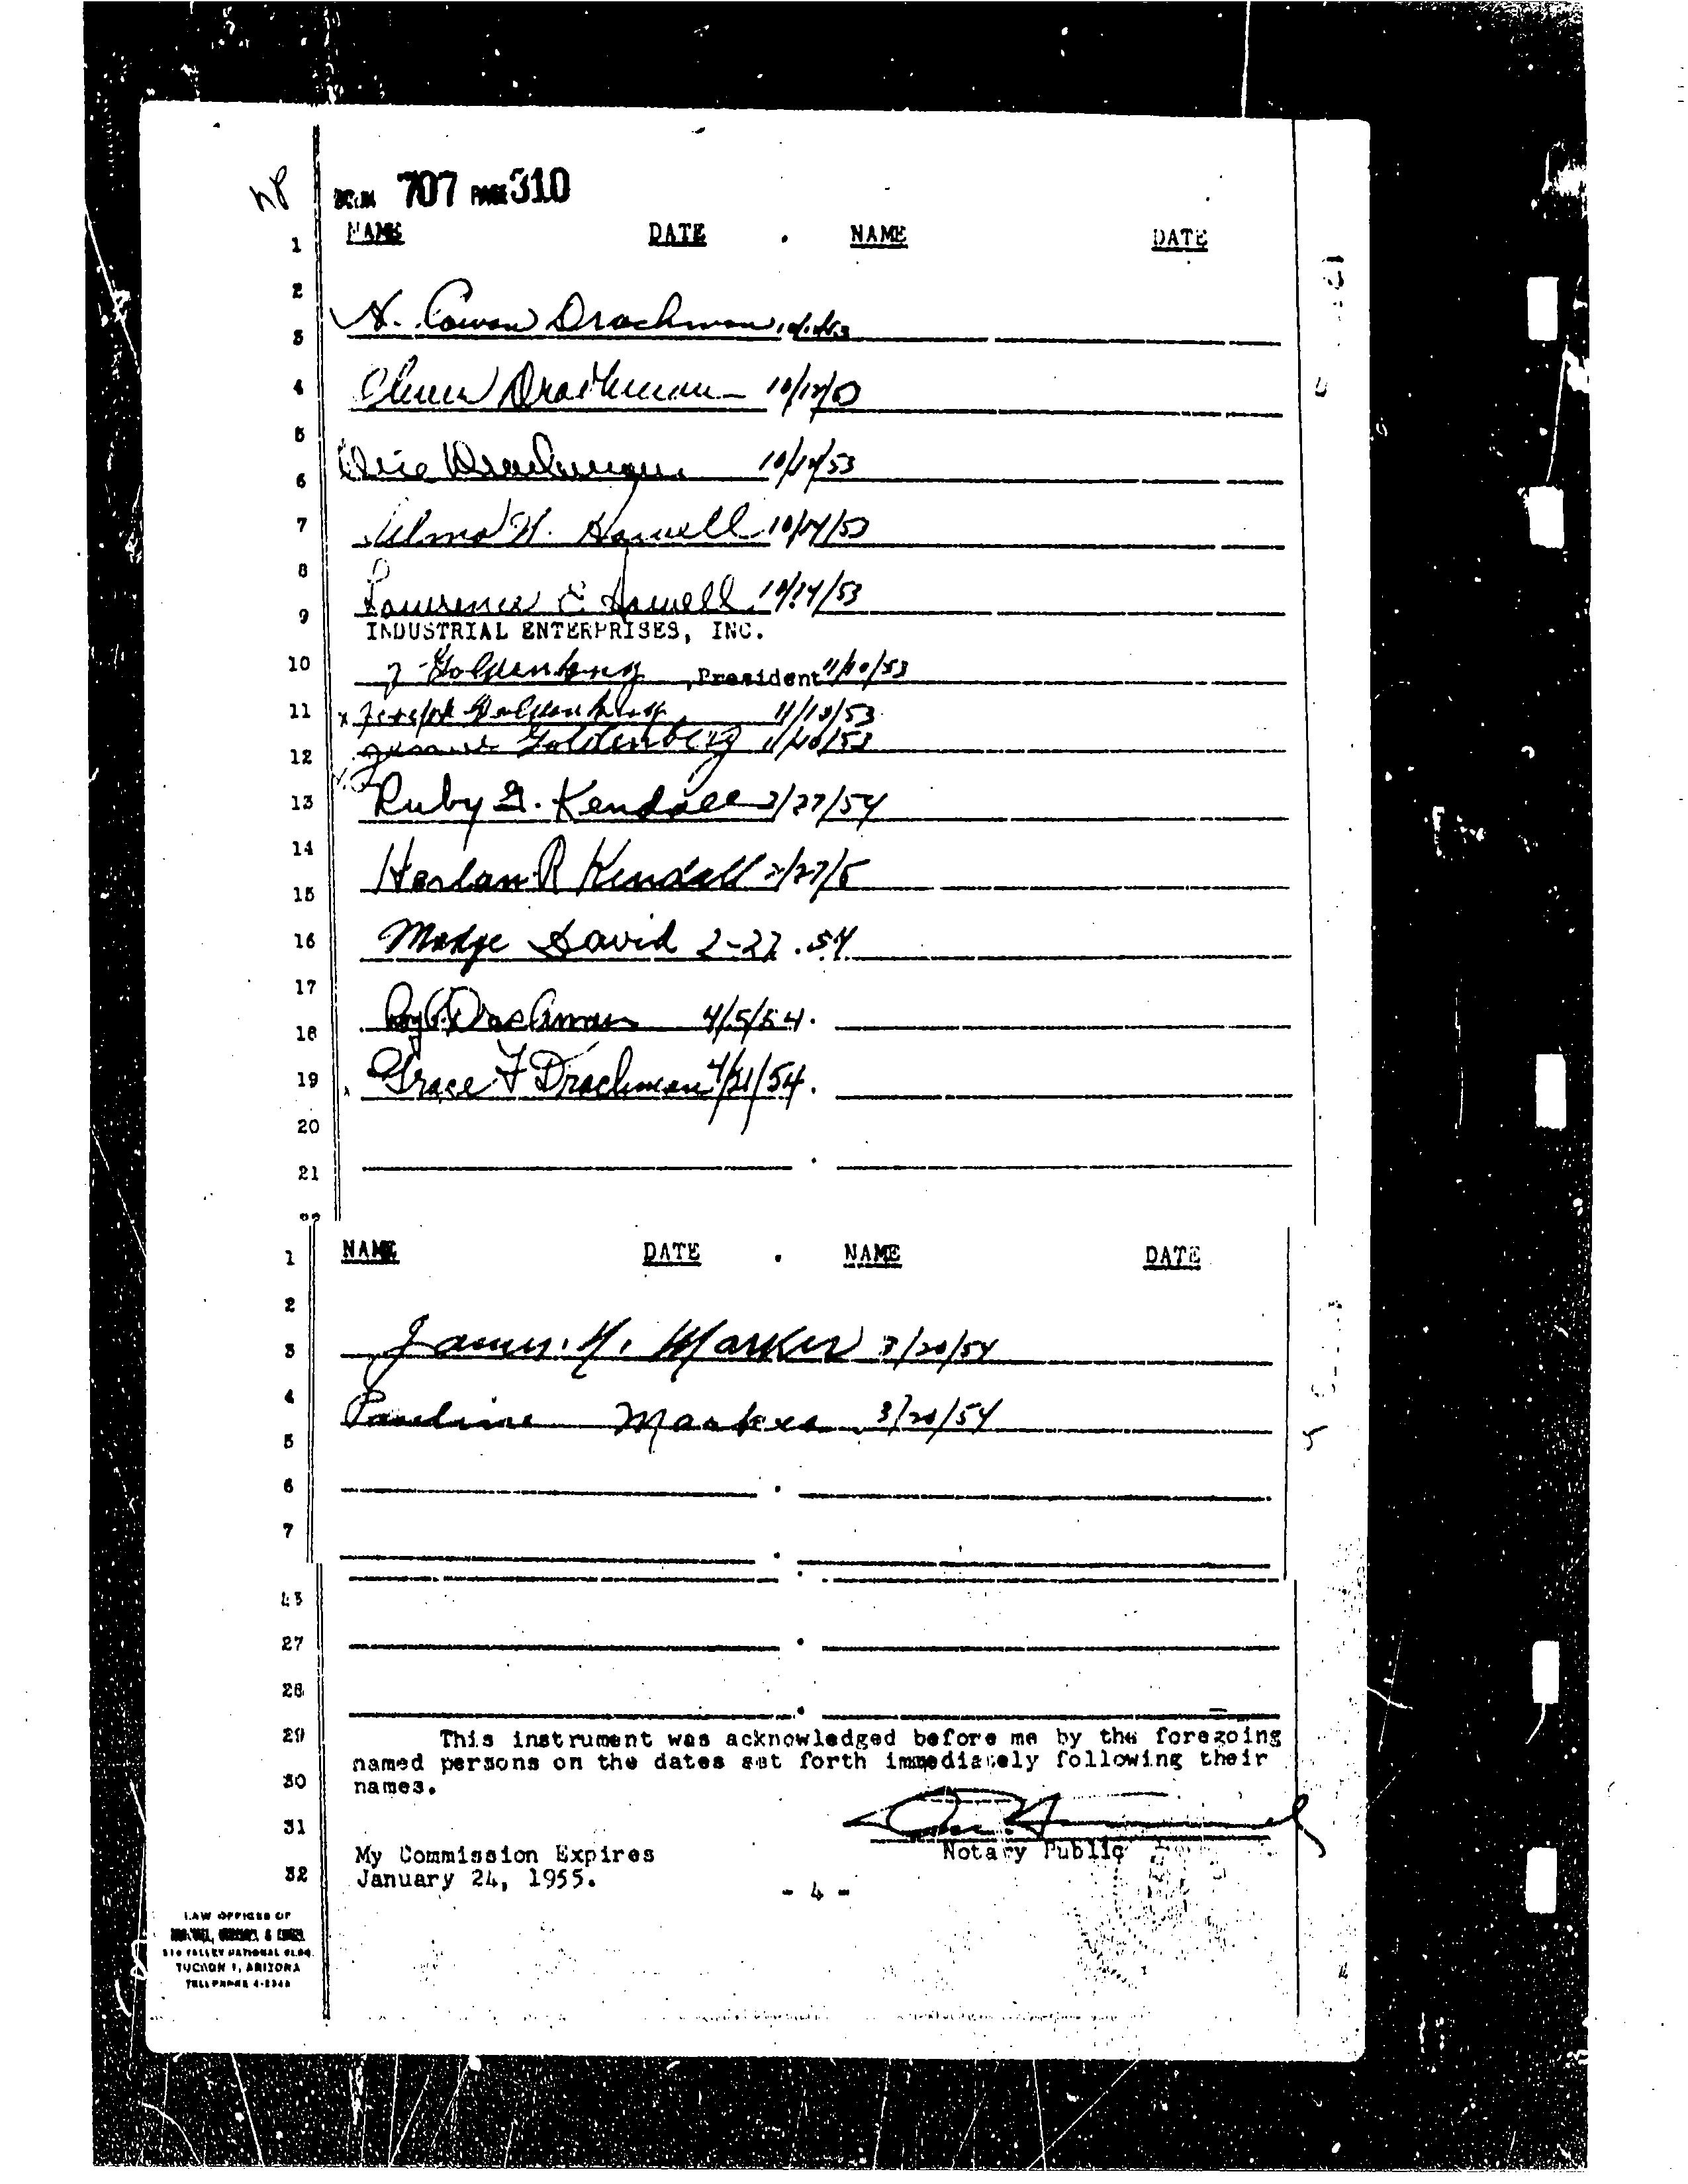 707 PAGE 310
NAME DATE . NAME DATE
1
2
H. Cowan Drachman
3
4
Drachman 10/12/53
5
Drachman 10/14/53
6
7
H. Howell 10/14/53
8
Lawrence E. Howell 10/14/53
9
INDUSTRIAL ENTERPRISES, INC.
10
J Goldenberg ,President 11/10/53
11
x Joseph Goldenberg 11/10/53
12
Goldenberg 11/10/53
13
Ruby G. Kendall 2/27/54
14
Harlan R Kendall 2/27/5
15
16
Madge David 2-27-54
17
Roy P. Drachman 4/5/54.
18
19
Grace F Drachman /21/54.
20
21
22
1
NAME DATE . NAME DATE
2
3
James H. Marker 3/20/54
4
Pauline 3/20/54
5
6
7
27
28
29
This instrument was acknowledged before me by the foregoing
named persons on the dates set forth immediately following their
30
names.
31
Notary Public
My Commission Expires
32
January 24, 1955.
- 4 -
LAW OFFICES OF
VALLEY NATIONAL BLDG.
TUCSON 1, ARIZONA
TELEPHONE